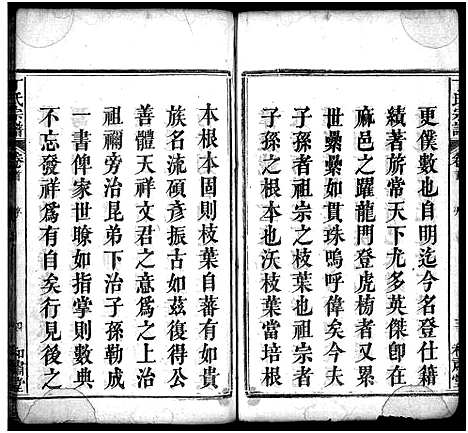 更僕數也自明迄今名登仕籍
績著於常天下尤多英傑卽在
麻邑之躍龍門登虎榜者後
世纍纍貫珠嗚呼偉矣矣今夫
子孫者祖宗之枝葉也祖宗者
子孫之根本也沃枝葉當培根
本根本固則枝葉自蕃有如貴
族名流碩彥振古如茲復得公
善體天祥文君之意爲之上
祖禰旁治昆弟下治子孫勒成
一書俾家世瞭如指掌則數典
不忘發祥爲有自矣行見後之
丁氏宗譜
卷首
序
四
和肅堂
氏宗譜